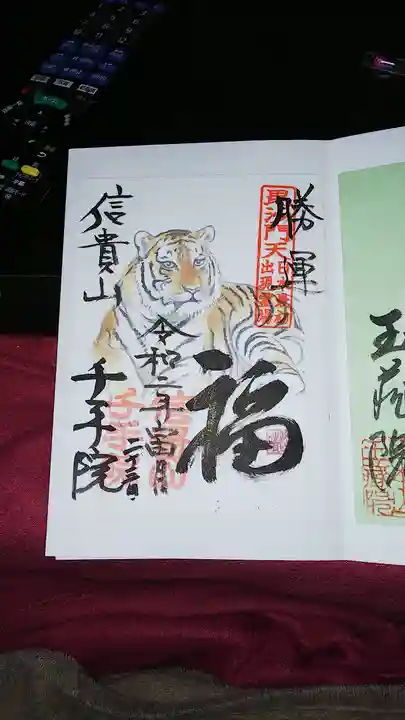 玉蔵院
勝運
毘沙門天
福
令和二年寅月
信貴山 千手院